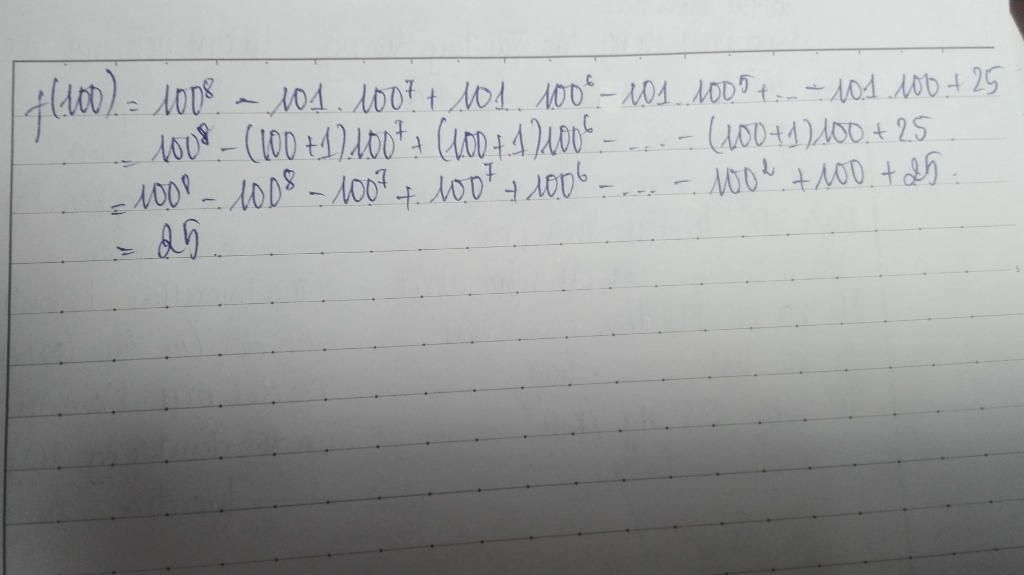 f(100) = 100⁸ - 101 . 100⁷ + 101 . 100⁶ - 101 . 100⁵ + ... - 101 . 100 + 25
= 100⁸ - (100+1)100⁷ + (100+1)100⁶ - .... - (100+1)100 + 25
= 100⁸ - 100⁸ - 100⁷ + 100⁷ + 100⁶ - .... - 100² + 100 + 25.
= 25.